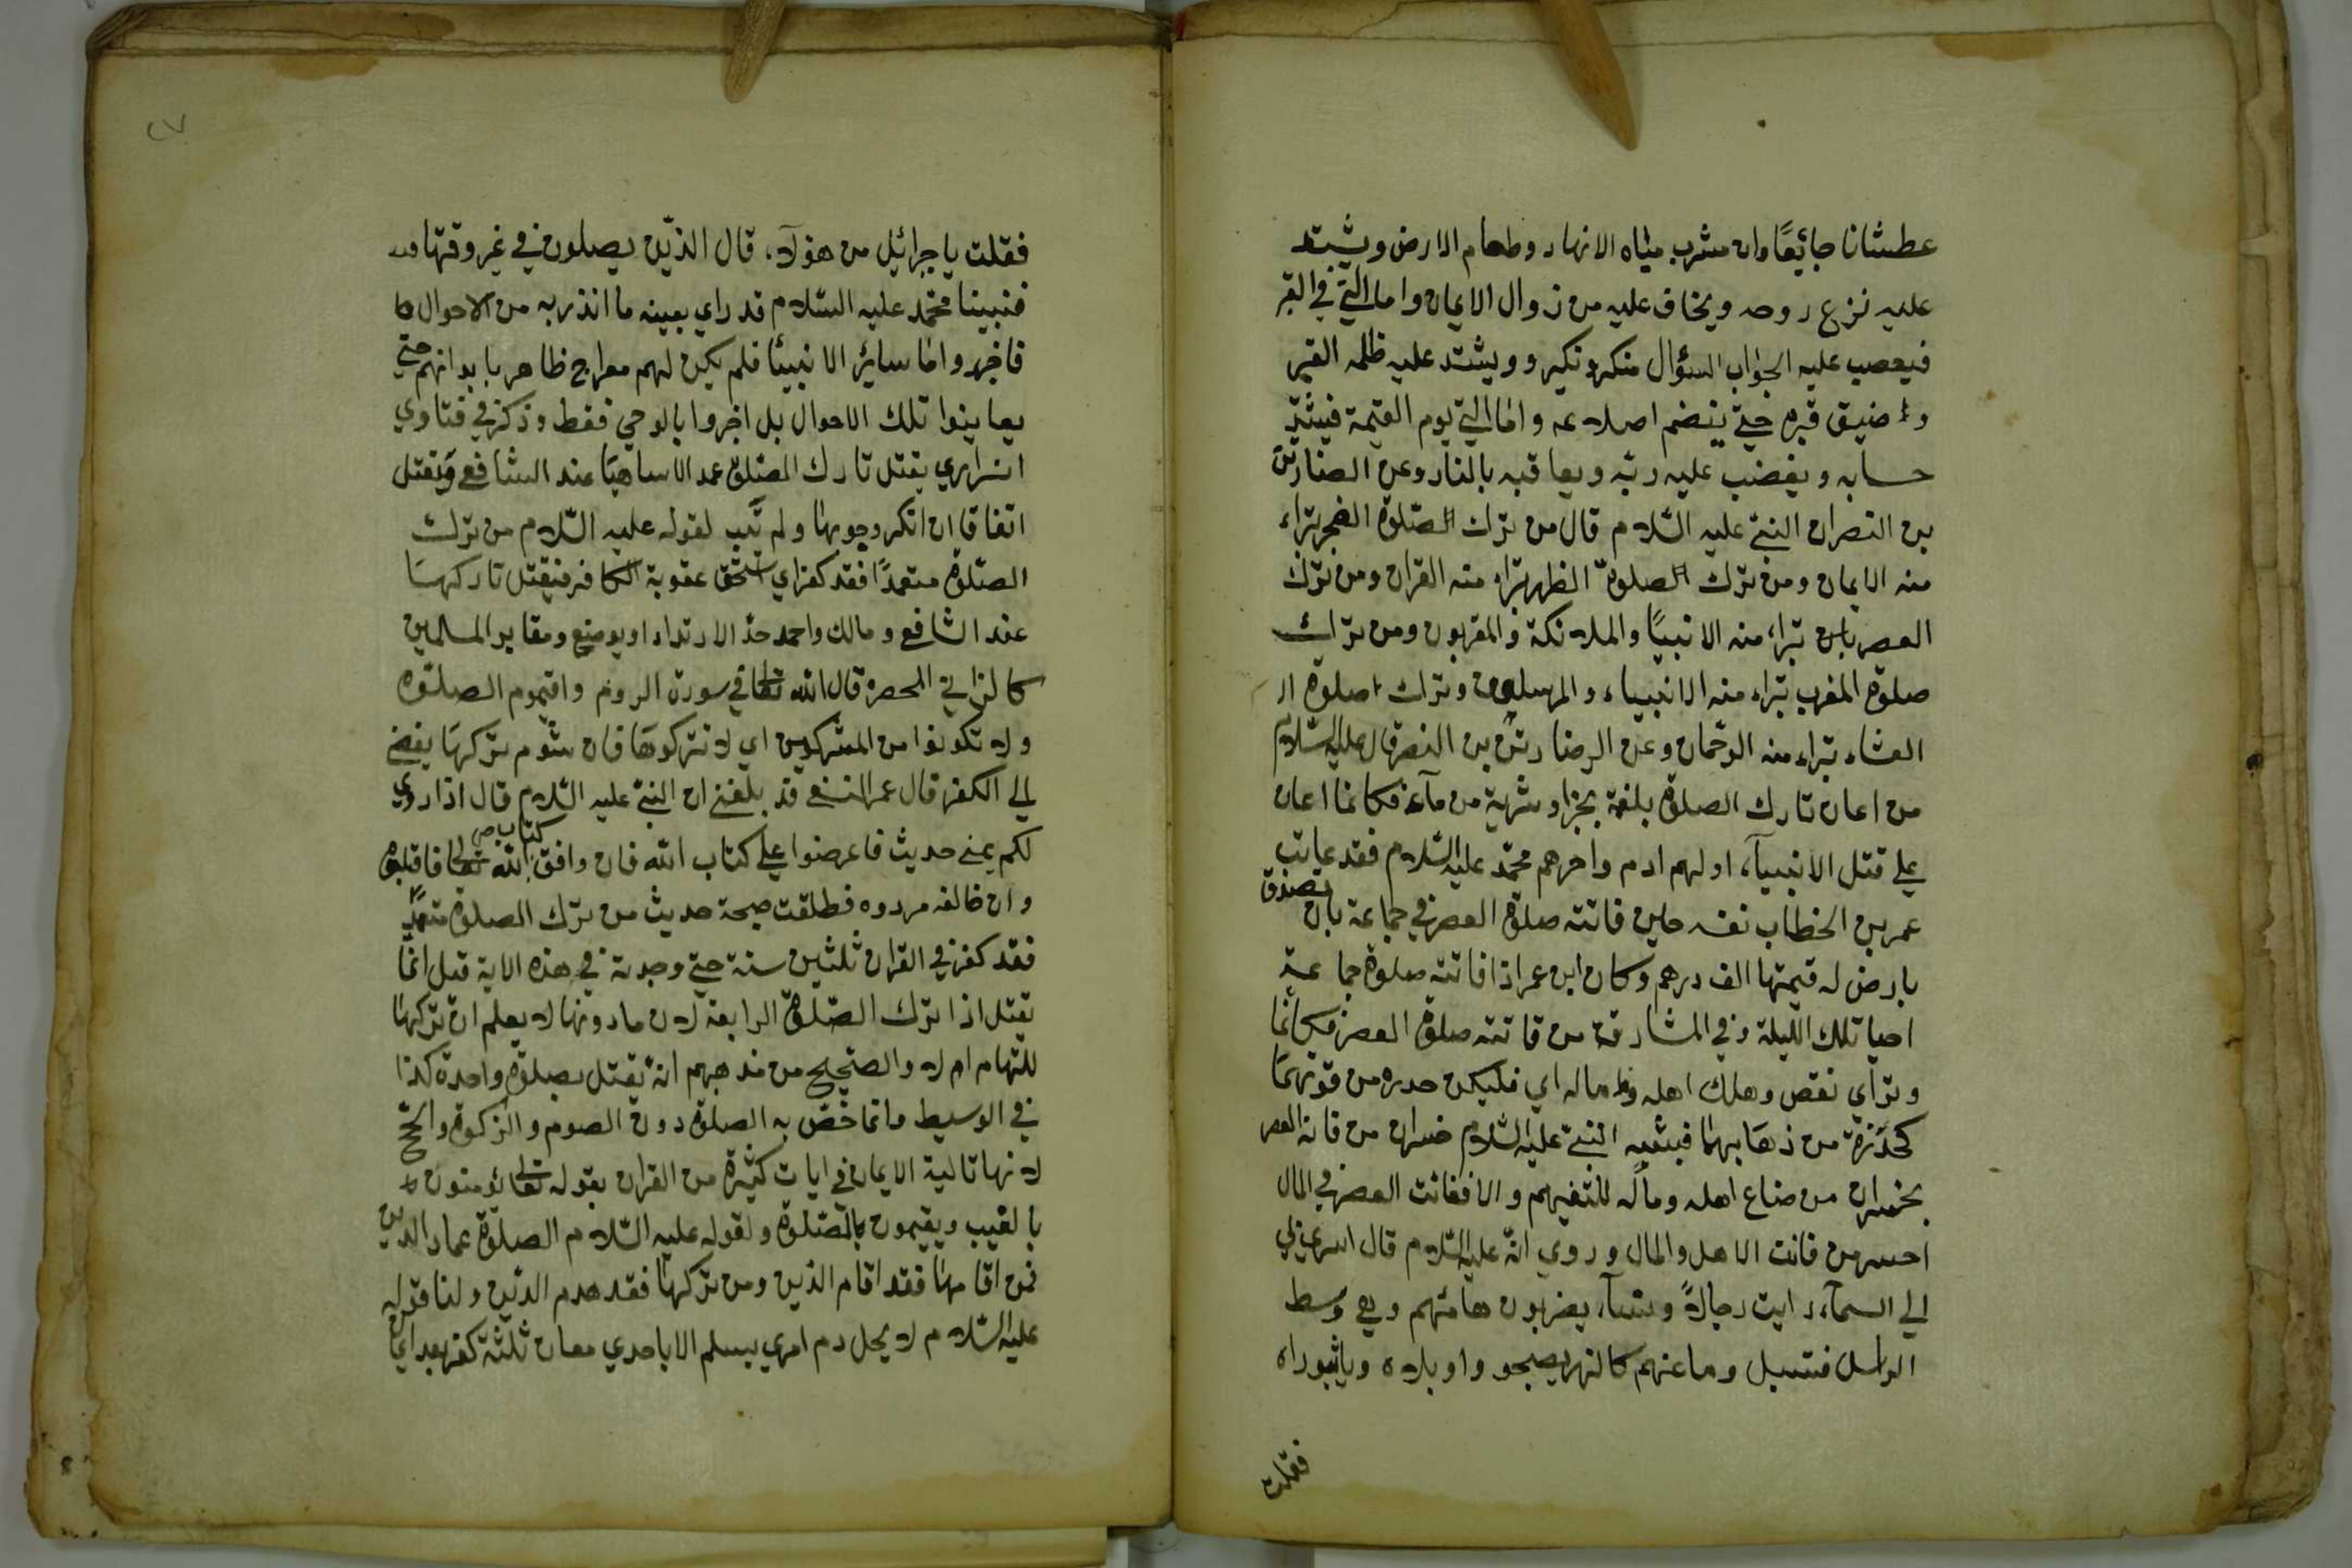 عطشانا جائعًا وان مشرب مياه الانهار وطعام الارض ويشتد
عليه نزع روحه ويخاف عليه من زوال الايمان واما التي في القبر
فيعصب عليه الجواب السؤال منكر ونكير وويشتد عليه ظلمه القبر
ضيق قبره حتي ينضم اصلاعه واما التي يوم القيمة فيشتد
حسابه ويغضب عليه ربّه ويعاقبه بالنار وعن
بن النصر ان النبيّ عليه السّلام قال من ترك الصّلوة الفجر تبراء
منه الايمان ومن ترك الصلوة الظهر تبراء منه القران ومن ترك
العصر تبراء منه الانبيًا والملائكة والمقربون ومن ترك
صلوة المغرب تبراء منه الانبياء والمرسلون وترك صلوة ال
العشاء تبراء منه الرحمان وعن الرضا بن النصر قال عليه السّلام
من اعان تارك الصلوة بلغمة بخبز او شربة من مآء فكانما اعان
علي قتل الانبيآء اولهم ادم واخرهم محمّد عليه السّلام فقد عاتب
عمر بن الخطاب نفسه حين فاتته صلوة العصر في جماعة بان تصدق
بارض له قيمتها الف درهم وكان ابن عمر اذا فاتته صلوة جماعة
احيا تلك الليلة وفي المشارق من فاتته صلوة العصر فكانّما
وتر اي نقص وهلك اهله وماله اي فليكن حدره من فوتهما
كحذره من ذهابهما فيشبه النبيّ عليه السّلام خسران من فاته العصر
بخسران من ضاع اهله وماله للتفهيم والا ففائت العصر في المال
اخسر من فائت الاهل والمال وروي انّه عليه السّلام قال اسري بي
الي السمآء رايت رجالاً ونسآء يضربون هامتهم وسط
الراس فتسيل دماغهم كالنهر يصيحو واويلاه وياثبوراه
فقلت
فقلت يا جبرائيل من هؤلآء قال الذّين يصلون في غير وقتها
فنبينا محمّد عليه السّلام قد راي بعينه ما انذر به من الاحوال
فاخبر واما سائر الانبيًا فلم يكن لهم معراج ظاهر بابدانهم حتي
يعاينوا تلك الاحوال بل اخبروا بالوحي فقط وذكر في فتاوي
يقتل تارك الصّلوة عمدا لا ساهيًا عند الشافع ويقتل
اتفاقا ان انكر وجوبها ولم تب لقوله عليه السّلام من ترك
الصّلوة متعمدًا فقد كفر اي استحق عقوبة الكافر فيقتل تاركها
عند الشافع ومالك واحمد حدّ الارتداء مقابر المسلمين
كالزاني المحصن قال الله تعالي في سورة الروم واقيموم الصلوة
ولا تكونوا من المشركين اي لا تتركوها فان شوم تركها يفضي
الي الكفر قال عمر النسفي قد بلغني ان النبيّ عليه السّلام قال اذا روي
لكم عني حديث فاعرضوا علي كتاب الله فان وافق كتاب الله تعالي فاقبلوه
وان خالفه فردوه فطلقت صحة حديث من ترك الصلوة متعمدًا
فقد كفر في القران ثلثين سنة حتي وجدته في هذه الاية قيل انّما
يقتل اذا ترك الصّلوة الرابعة لان مادونها لا يعلم ان تركها
للتهام ام لا والصحيح من مذهبهم انّه يقتل بصلوة واحدة كذا
في الوسيط وانما خصّ به الصلوة دون الصوم والزكوة والحج
لانها تالية الايمان في ايات كثيرة من القران بقوله تعالي يؤمنون
بالغيب ويقيمون بالصّلوة ولقوله عليه السّلام الصلوة عماد الدين
فمن اقامها فقد اقام الدّين ومن تركها فقد هدم الدّين ولنا قوله
عليه السّلام لا يحل دم امري مسلم الا باحدي معان ثلثة كفر بعد ايمان